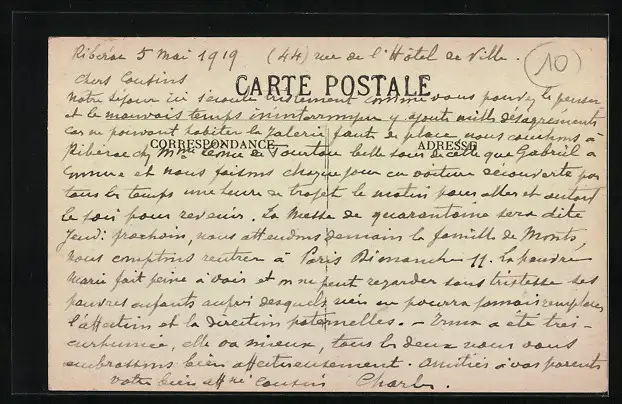 Ribérac 5 Mai 1919 (44) rue de l'Hôtel de Ville.
10
Chers Cousins
CARTE POSTALE
notre séjour ici s'écoule tristement comme vous pouvez le penser
et le mauvais temps ininterrompu y ajoute mille désagréments
car ne pouvant habiter la Valerie faute de place nous couchons à
CORRESPONDANCE ADRESSE
Ribérac chez Mme de belle sœur de celle que Gabriel a
connue et nous faisons chaque jour en voiture découverte par
tous les temps une heure de trajet le matin pour aller et autant
le soir pour revenir. La Messe de quarantaine sera dite
Jeudi prochain, nous attendons demain la famille de Monts,
nous comptons rentrer à Paris Dimanche 11. La pauvre
Marie fait peine à voir et on ne peut regarder sans tristesse ses
pauvres enfants auprès desquels rien ne pourra jamais remplacer
l'affection et la direction paternelles. — a été très-
enrhumée, elle va mieux, tous les deux nous vous
embrassons bien affectueusement. Amitiés à vos parents
votre bien affné cousin Charles.